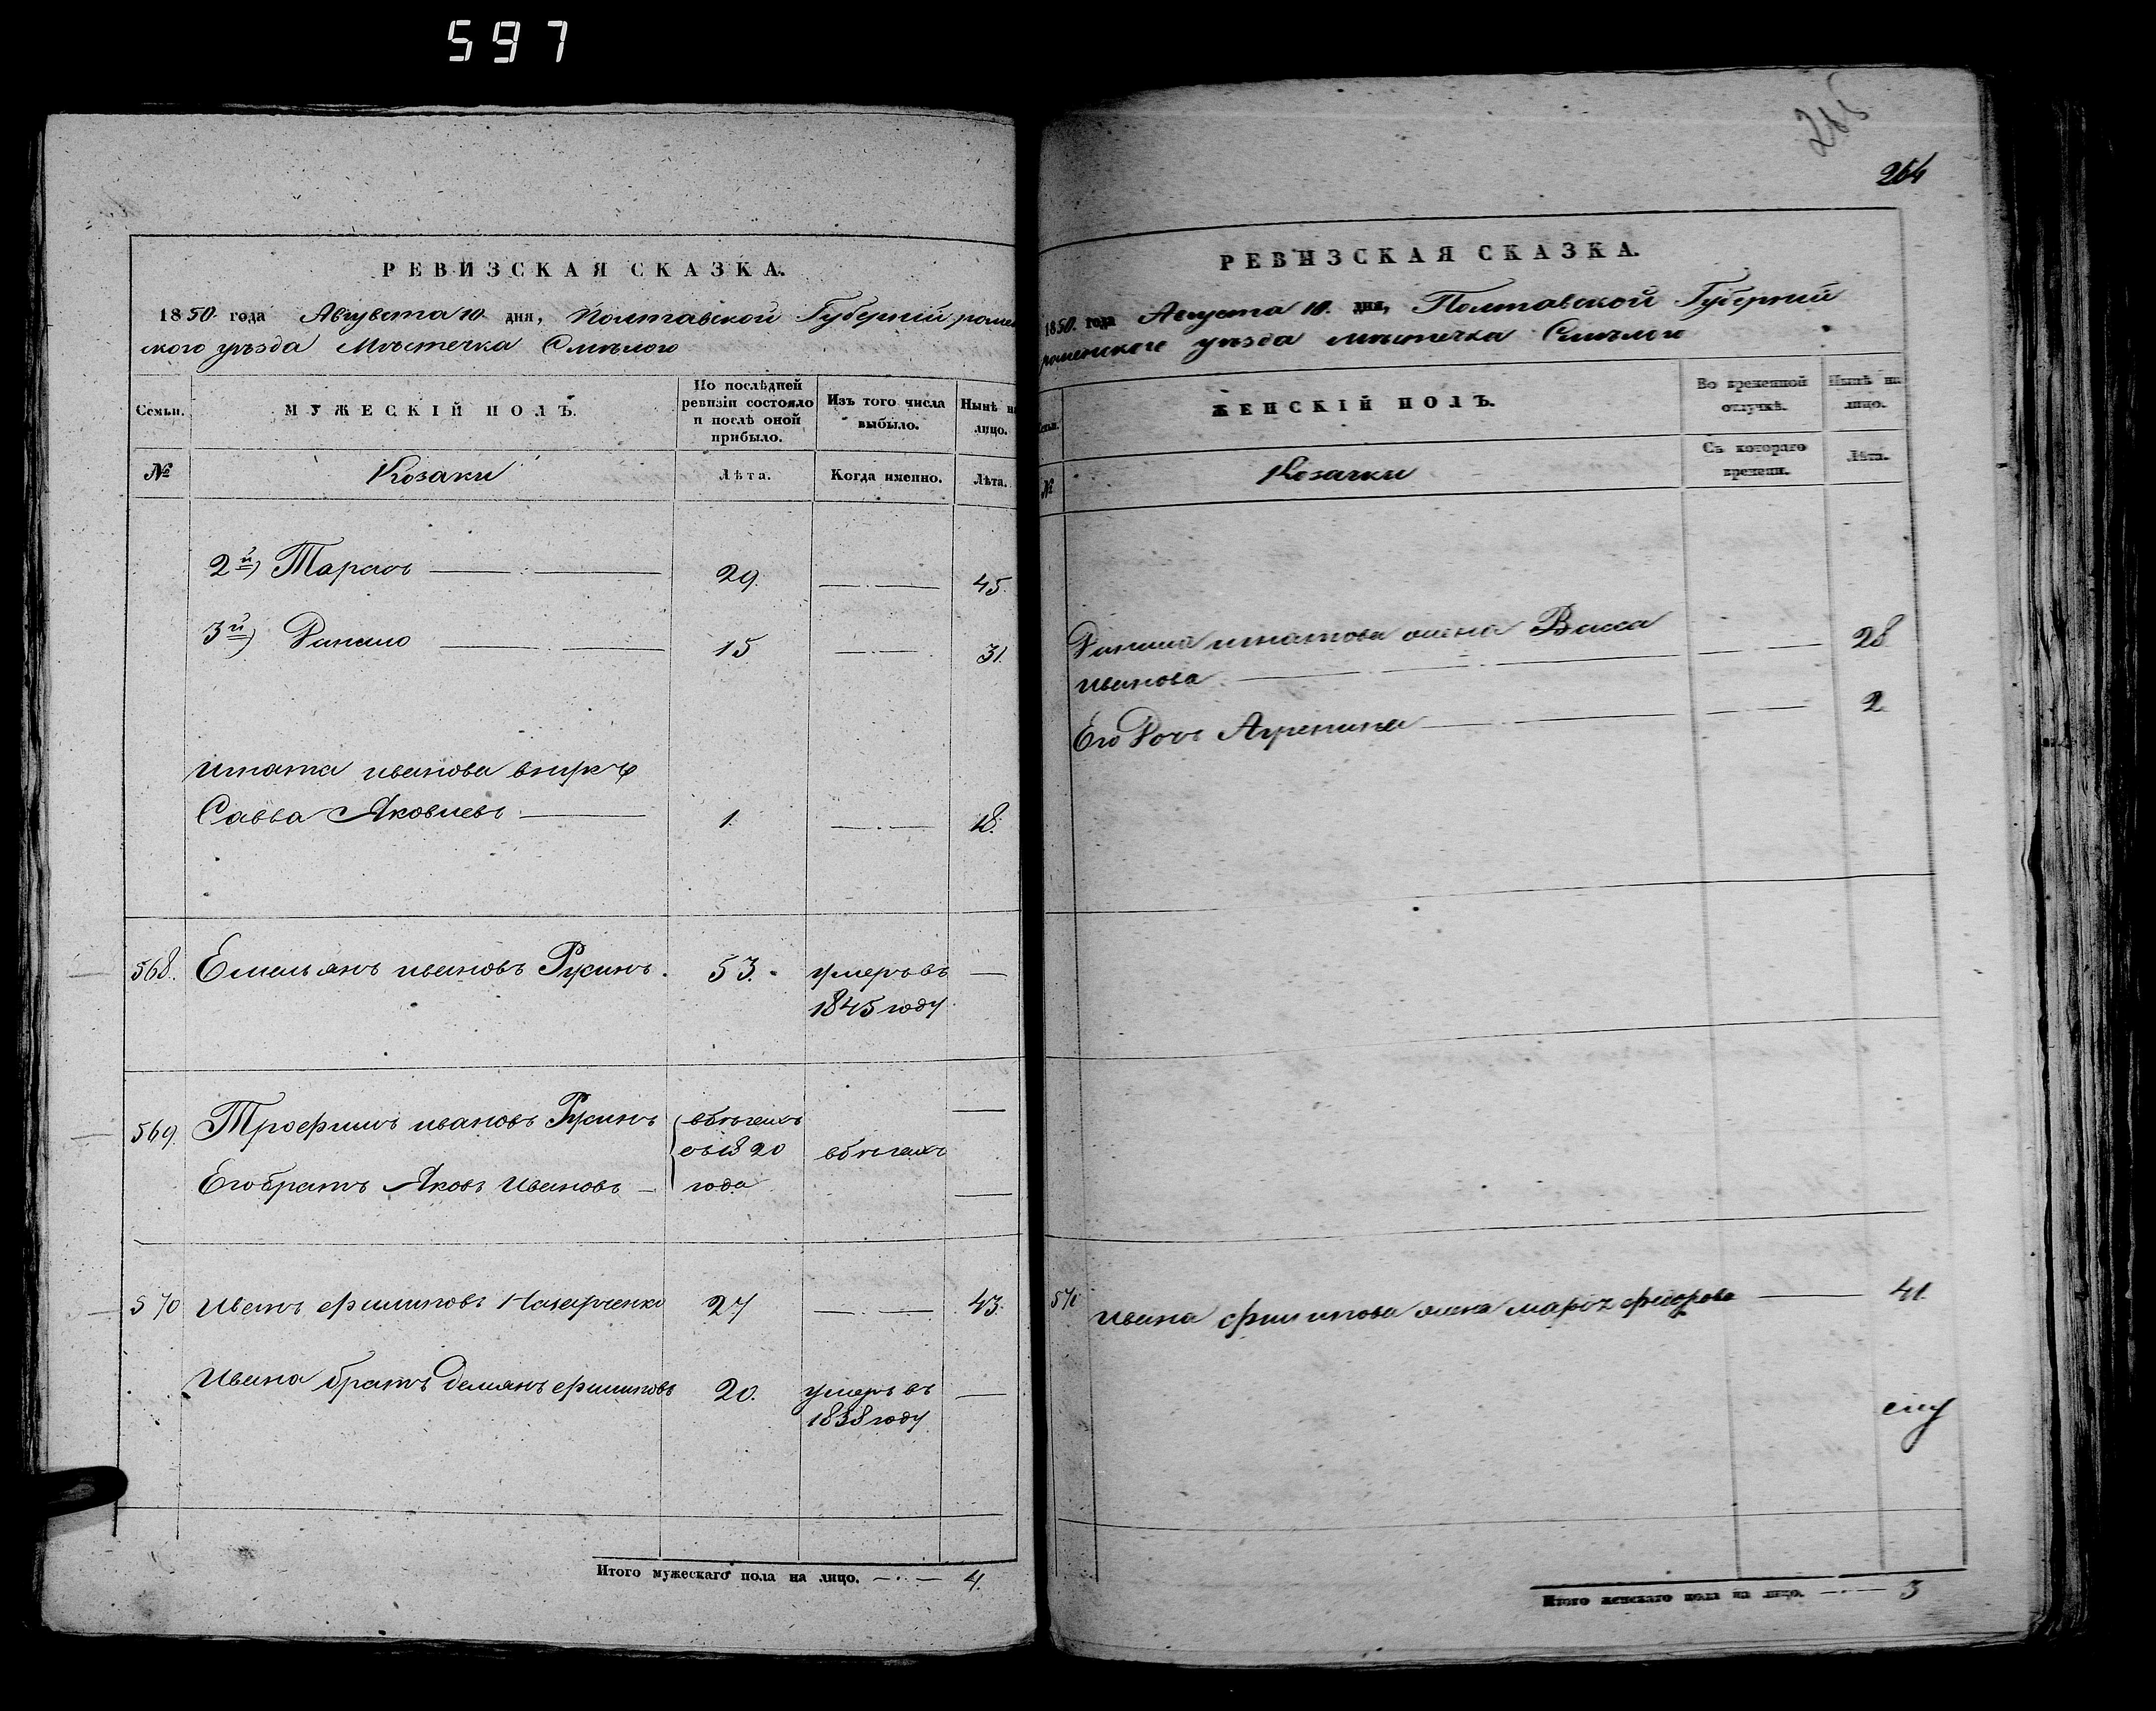 597
РЕВИЗСКАЯ СКАЗКА.
1850 года Августа 10 дня, Полтавской Губерніи ромен
ского уѣзда Мѣстечка Смѣлого
Семьи.
МУЖЕСКІЙ ПОЛЪ.
По послѣдней
ревизіи состояло
и послѣ оной
прибыло.
Изъ того числа
выбыло.
Нынѣ на
лицо.
№
Козаки
Лѣта.
Когда именно.
Лѣта.
2й) Тарасъ 29. 45.
3й) Данило 15 31.
Игната иванова внукъ
Савва Яковлевъ 1. 18.
568. Емельянъ ивановъ Русинъ. 53. умеръ въ
1845 году
569. Трофимъ ивановъ Русинъ вбѣгахъ
съ 1820 вбѣгахъ
Его братъ Яковъ Ивановъ года
570 Иванъ филиповъ Назарченко 27 43.
Ивана братъ Демянъ филиповъ 20. умеръ въ
1838 году
Итого мужескаго пола на лицо. 4.
264
РЕВИЗСКАЯ СКАЗКА.
1850. года Августа 10. дня, Полтавской Губерніи
роменского уѣзда мѣстечка Смѣлого
Семьи.
ЖЕНСКІЙ ПОЛЪ.
Во временной
отлучкѣ.
Нынѣ на
лицо.
№
Козачки
Съ котораго
времени.
Лѣта.
Данила игнатова жена Васса 28
иванова
Его Дочь Агрепина 2
570 Ивана филипова жена 41.
Итого женскаго пола на лицо. 3